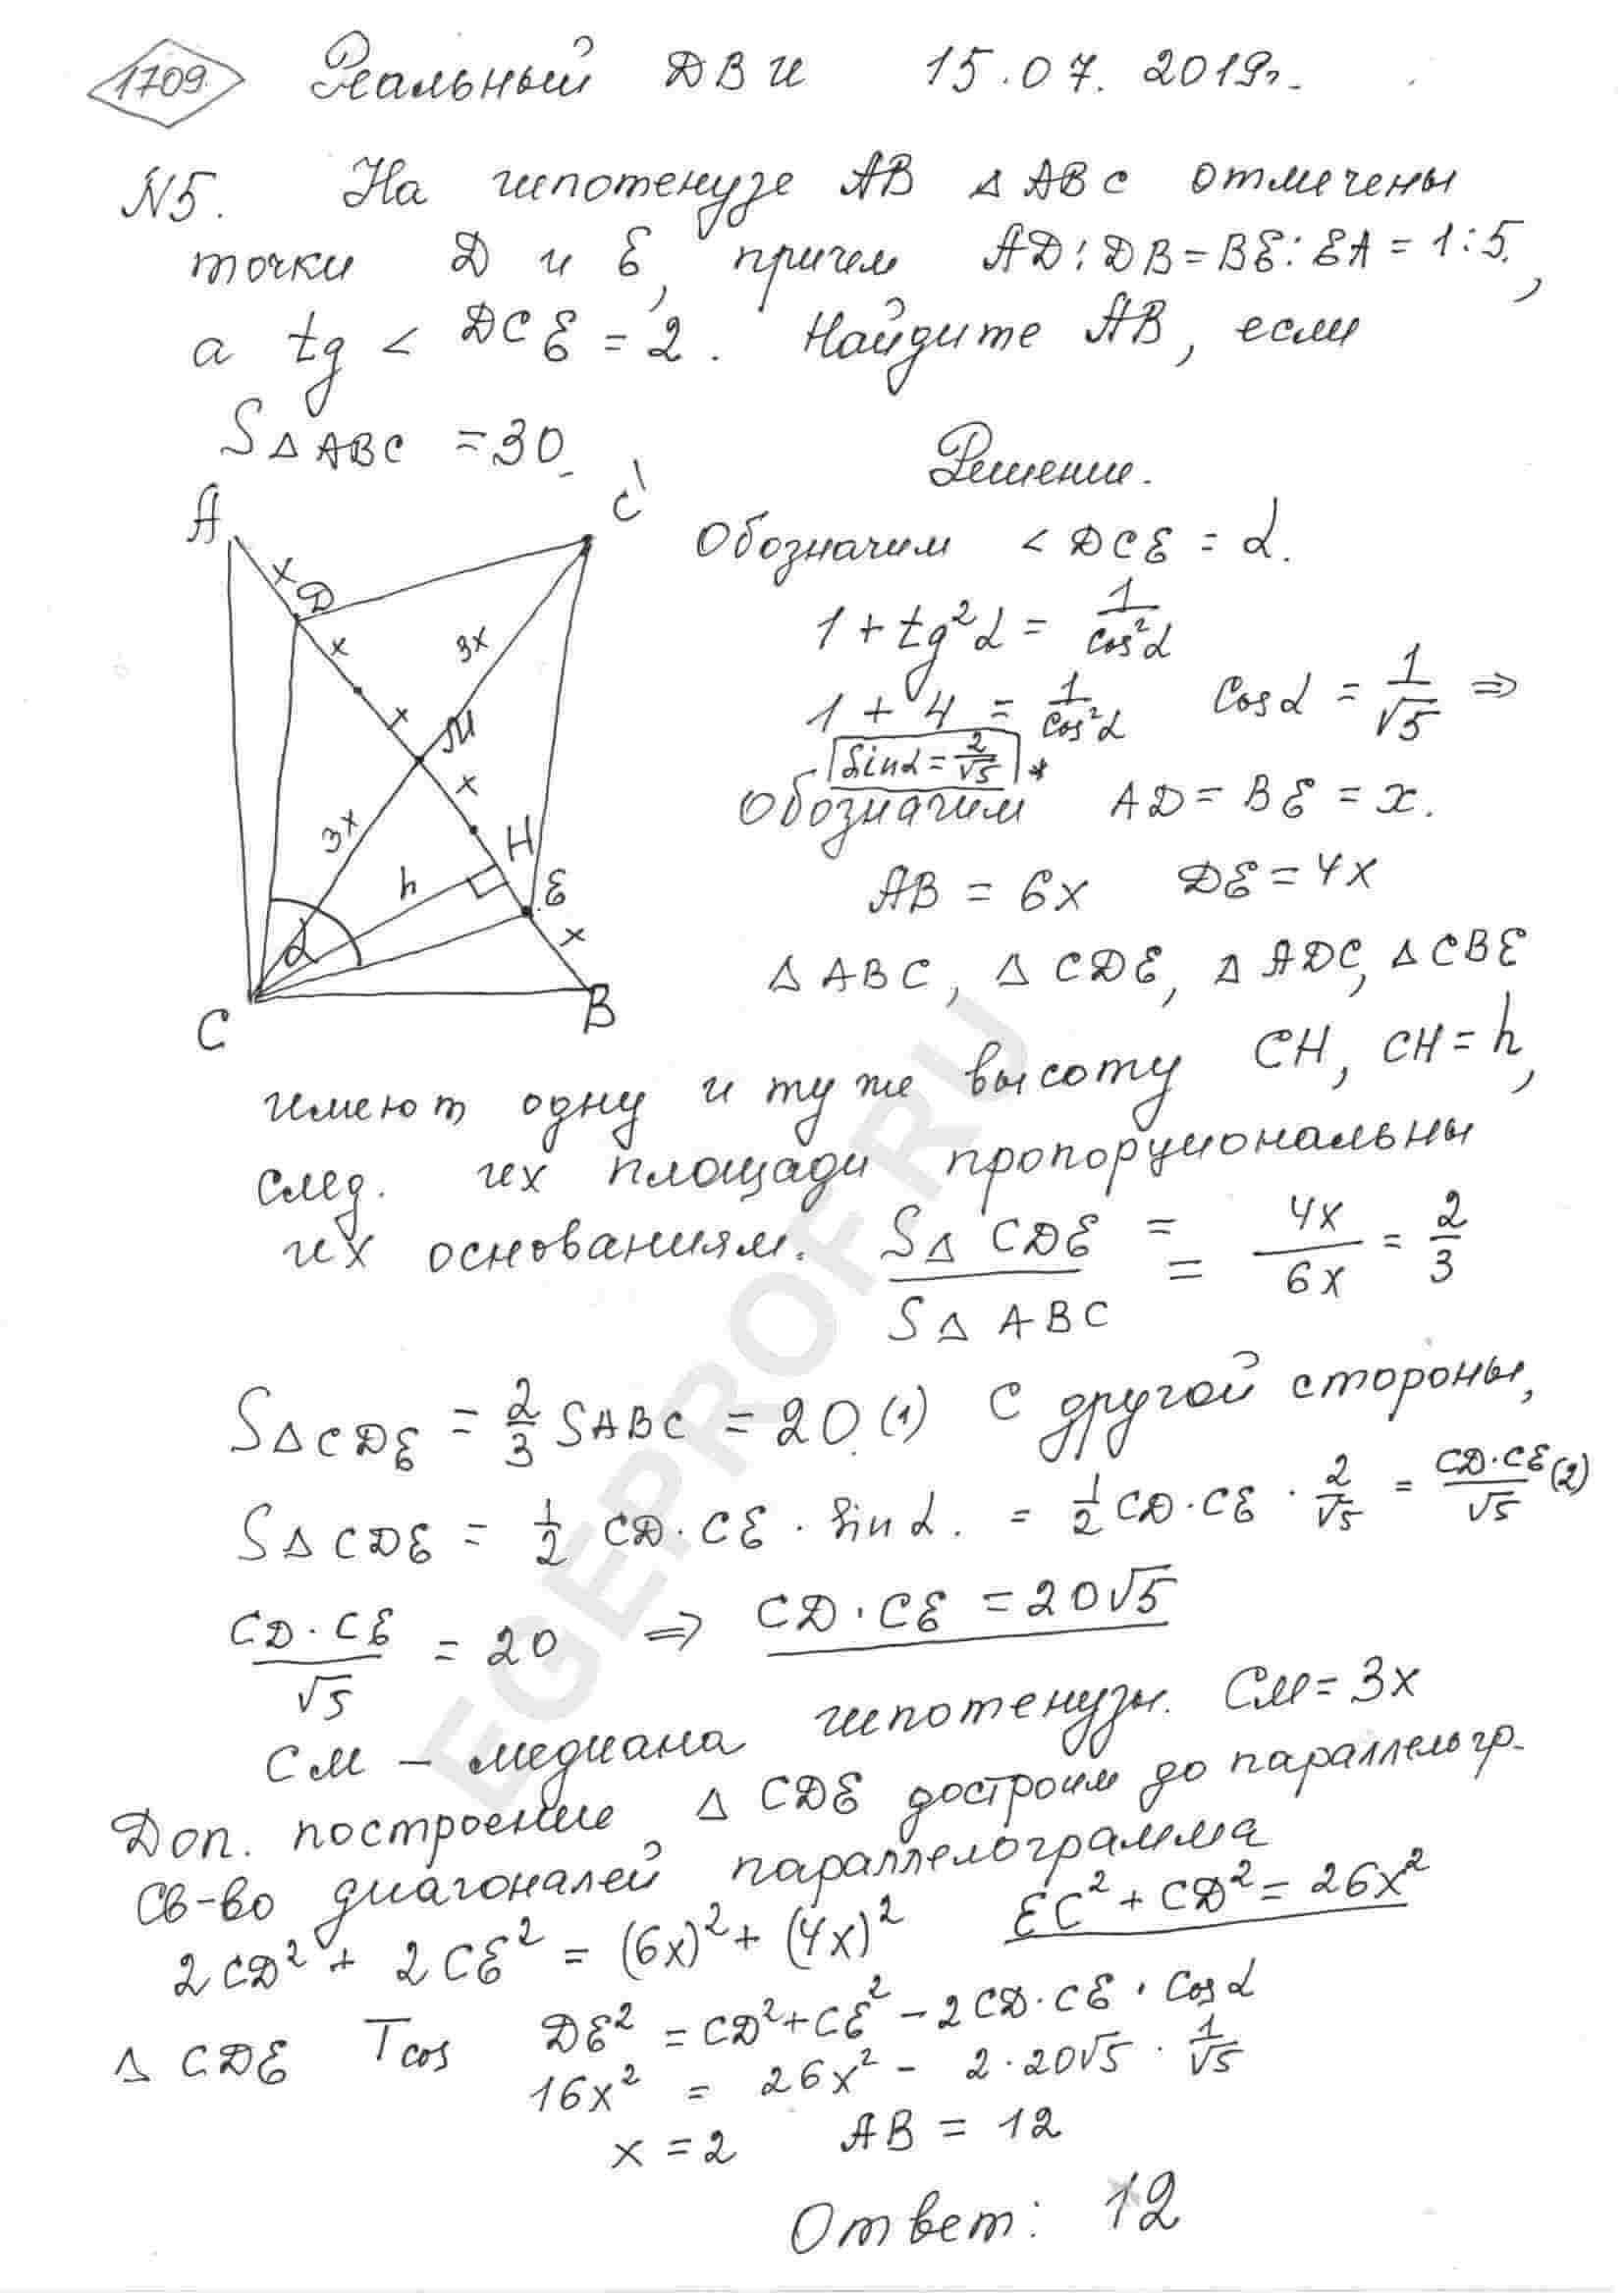 1709. Реальный ДВИ 15.07.2019г.
N5. На гипотенузе AB △ABC отмечены
точки D и E, причем AD:DB=BE:EA=1:5,
а tg < DCE = 2. Найдите AB, если
S△ABC = 30.
Решение.
A
C'
x
D
x
3x
x
M
x
3x
H
h
E
α
x
C
B
Обозначим < DCE = α.
1 + tg²α = 1/cos²α
1 + 4 = 1/cos²α cosα = 1/√5 ⇒
sinα = 2/√5 *
Обозначим AD = BE = x.
AB = 6x DE = 4x
△ABC, △CDE, △ADC, △CBE
имеют одну и ту же высоту CH, CH = h,
след. их площади пропорциональны
их основаниям. S△CDE/S△ABC = 4x/6x = 2/3
S△CDE = 2/3 SABC = 20. (1) С другой стороны,
S△CDE = 1/2 CD·CE·sinα. = 1/2 CD·CE · 2/√5 = CD·CE/√5 (2)
CD·CE/√5 = 20 ⇒ CD·CE = 20√5
CM – медиана гипотенузы. CM = 3x
Доп. построение △CDE достроим до параллелогр.
Св-во диагоналей параллелограмма
2CD² + 2CE² = (6x)² + (4x)² EC² + CD² = 26x²
△CDE Tcos DE² = CD² + CE² – 2CD·CE·cosα
16x² = 26x² – 2·20√5 · 1/√5
x = 2 AB = 12
Ответ: 12
EGEPROF.RU